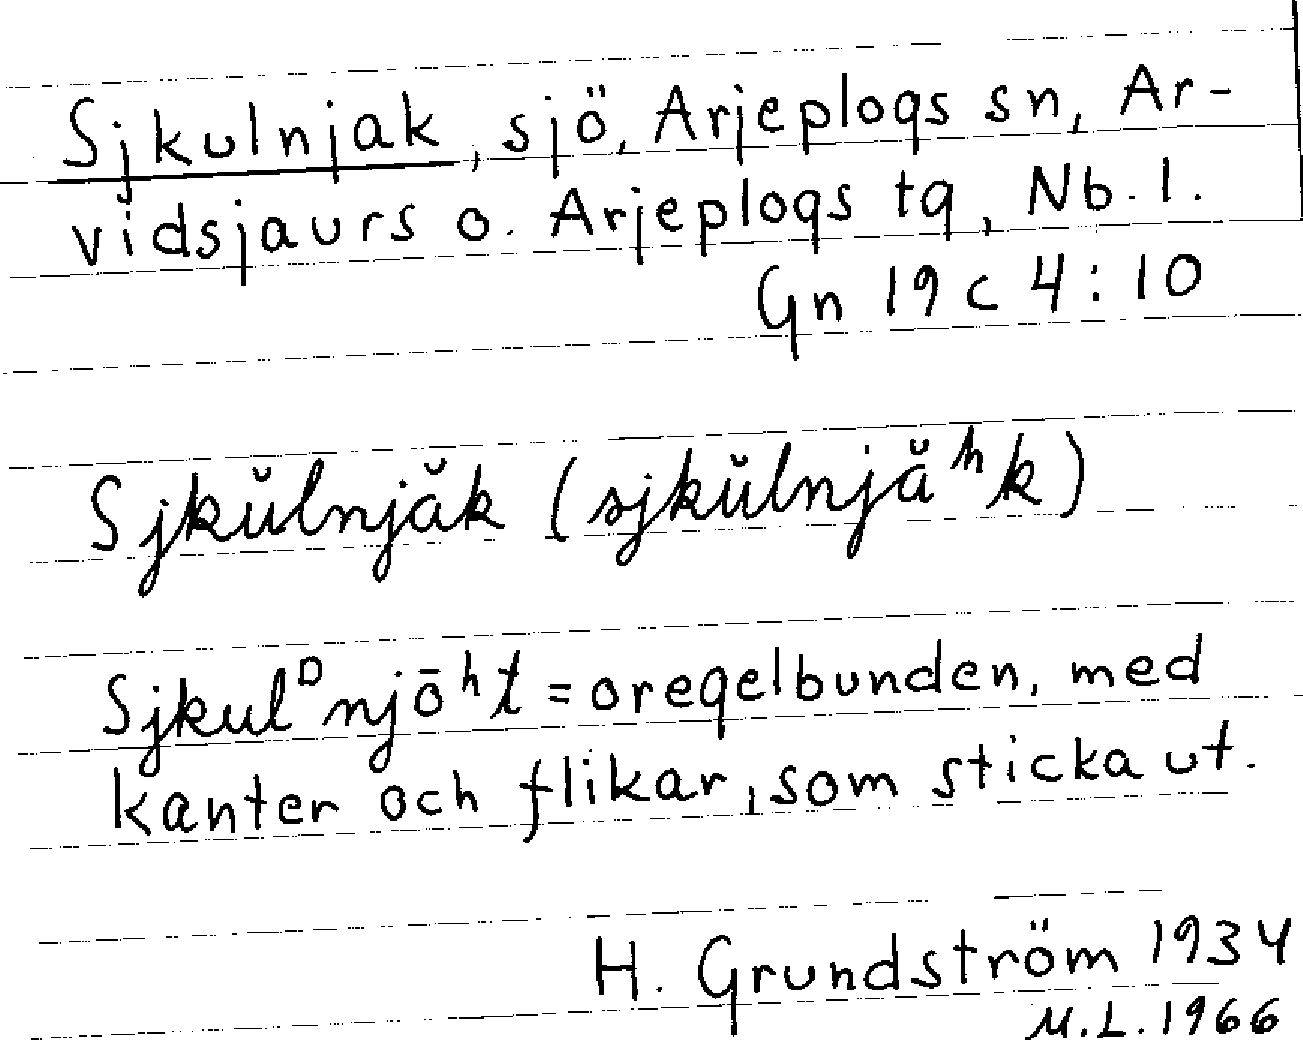 Sjkulnjak, sjö, Arjeplogs sn, Ar-
vidsjaurs o. Arjeplogs tg, Nb. l.
Gn 19 c 4:10
Sjkŭlnjăk (sjkŭlnjå̆ʰk)
Sjkulᴰnjōʰt = oregelbunden, med
kanter och flikar, som sticka ut.
H. Grundström 1934
M.L. 1966